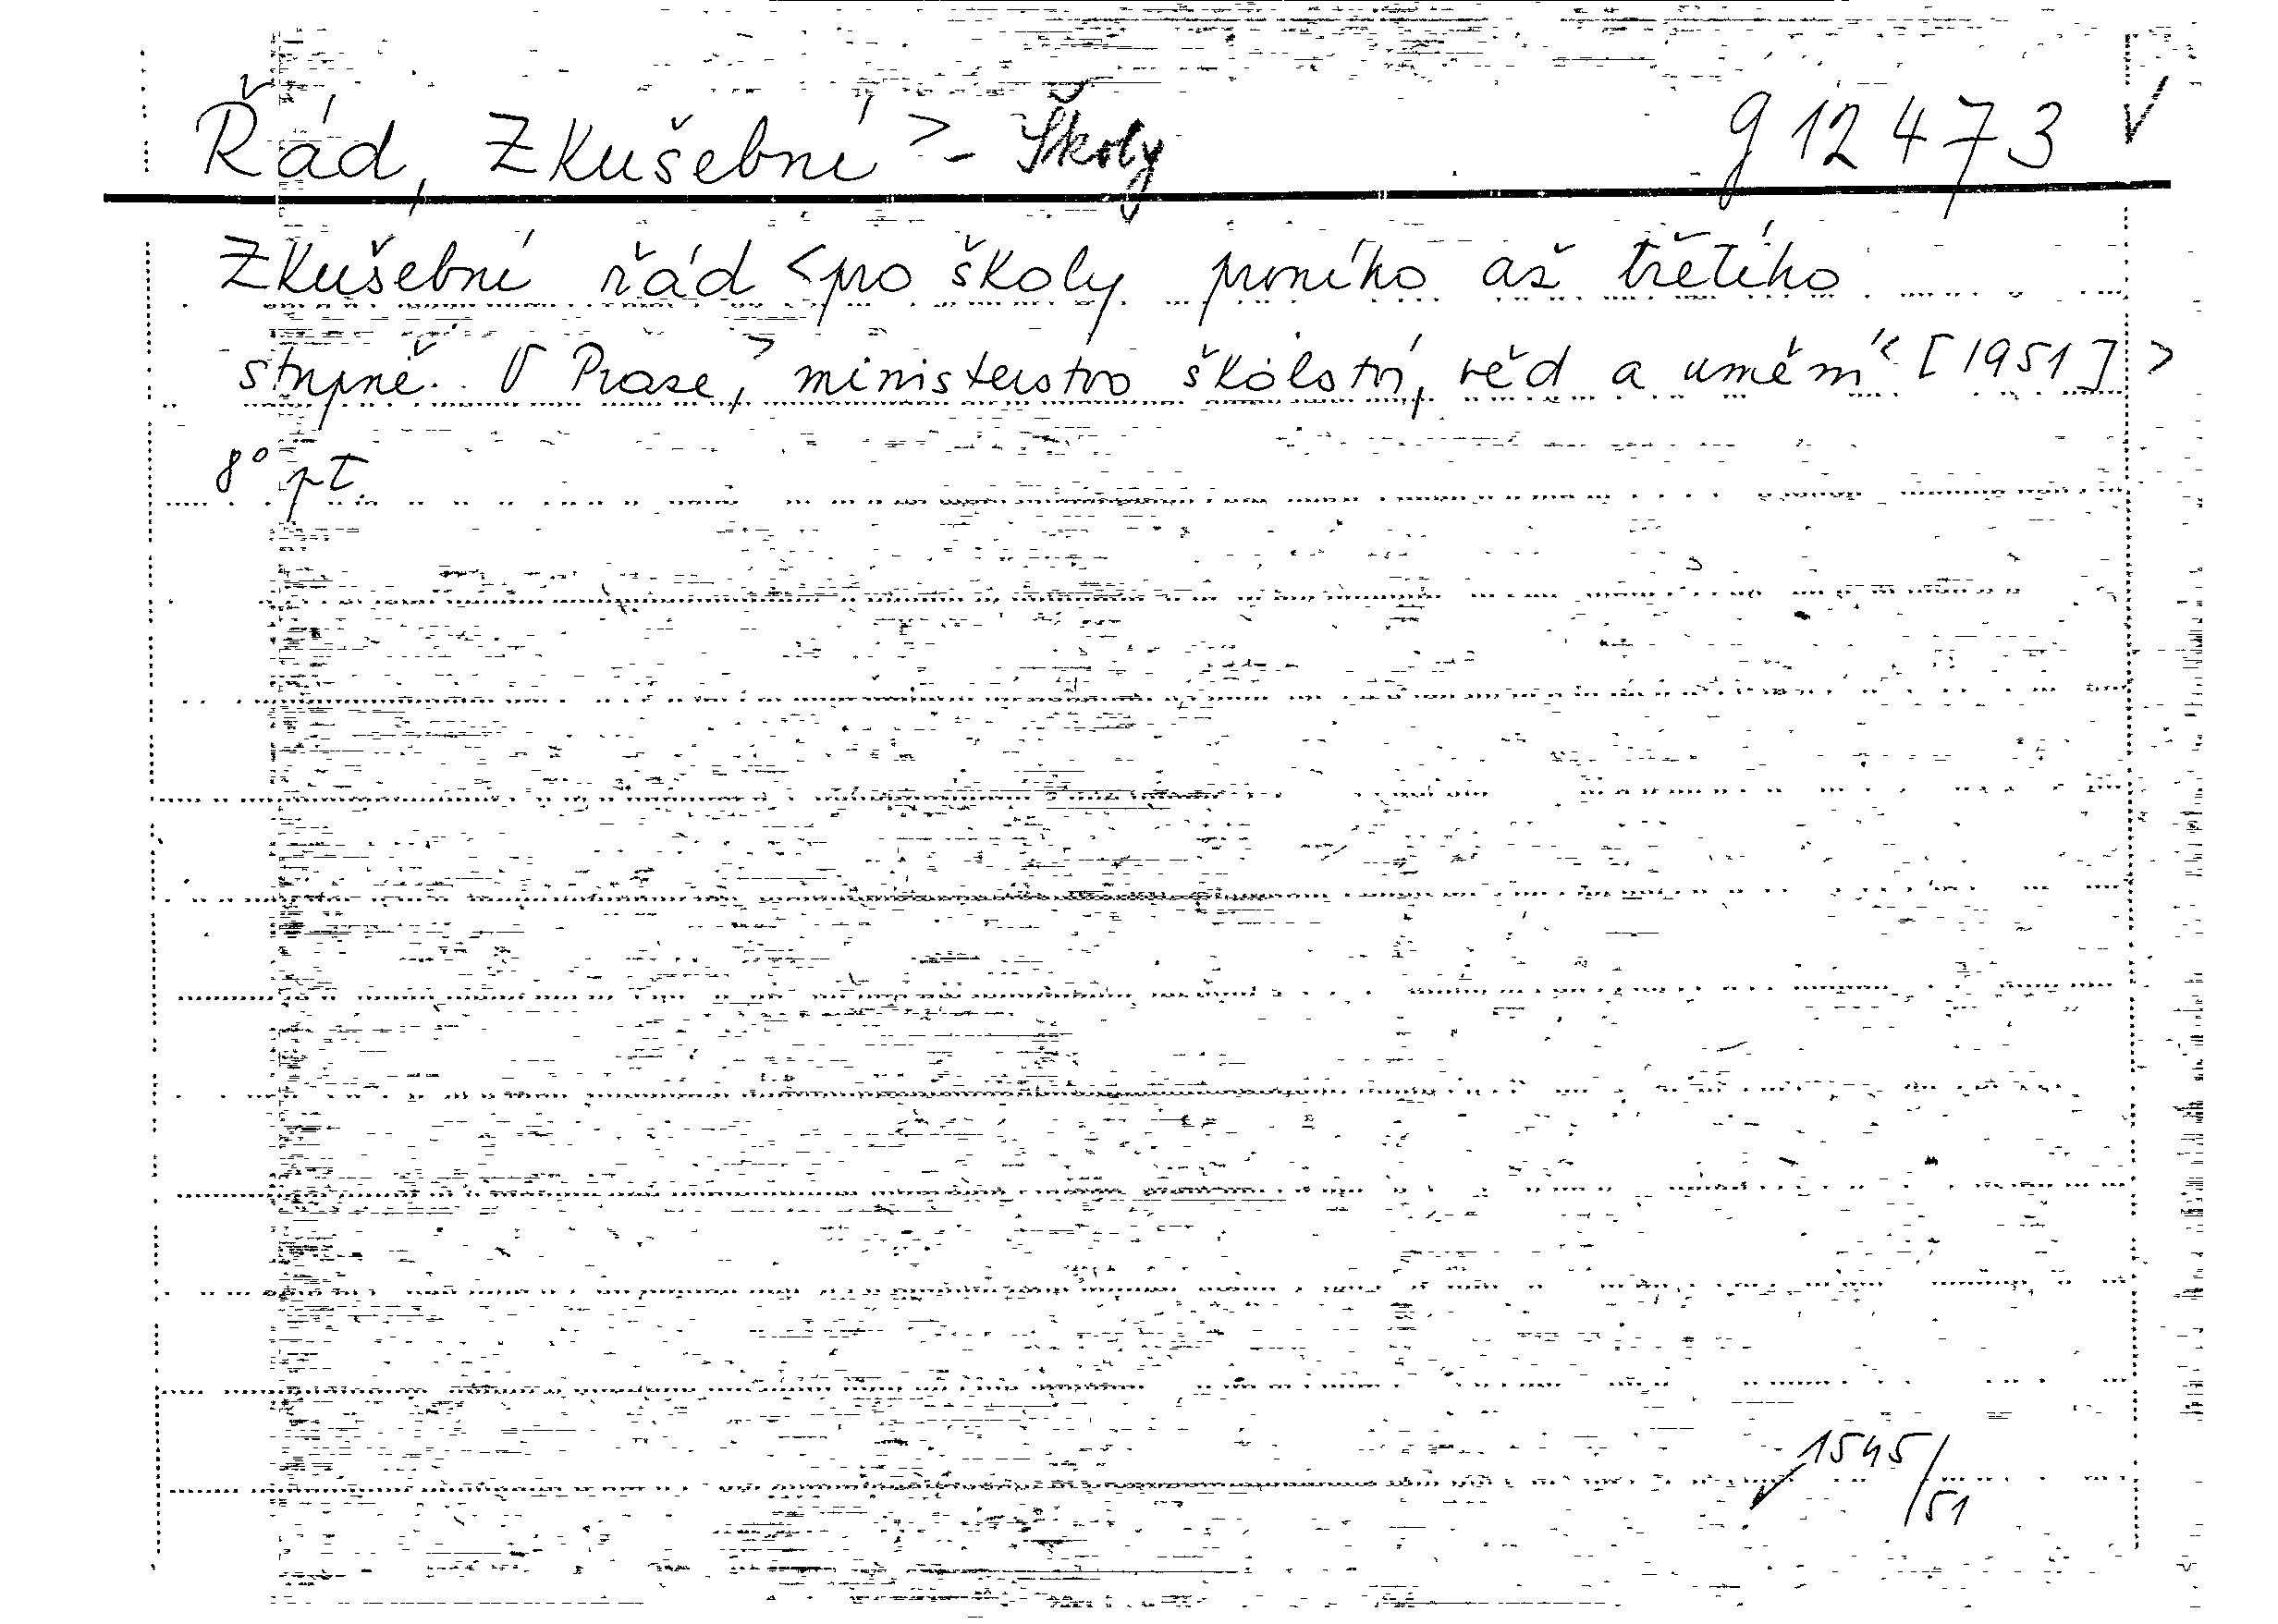 Řád, Zkušební > - Školy g 12473 V
Zkušební řád <pro školy prvního až třetího
stupně. V Praze, > ministerstvo školství, věd a umění < [1951] >
8° pt.
1545/51